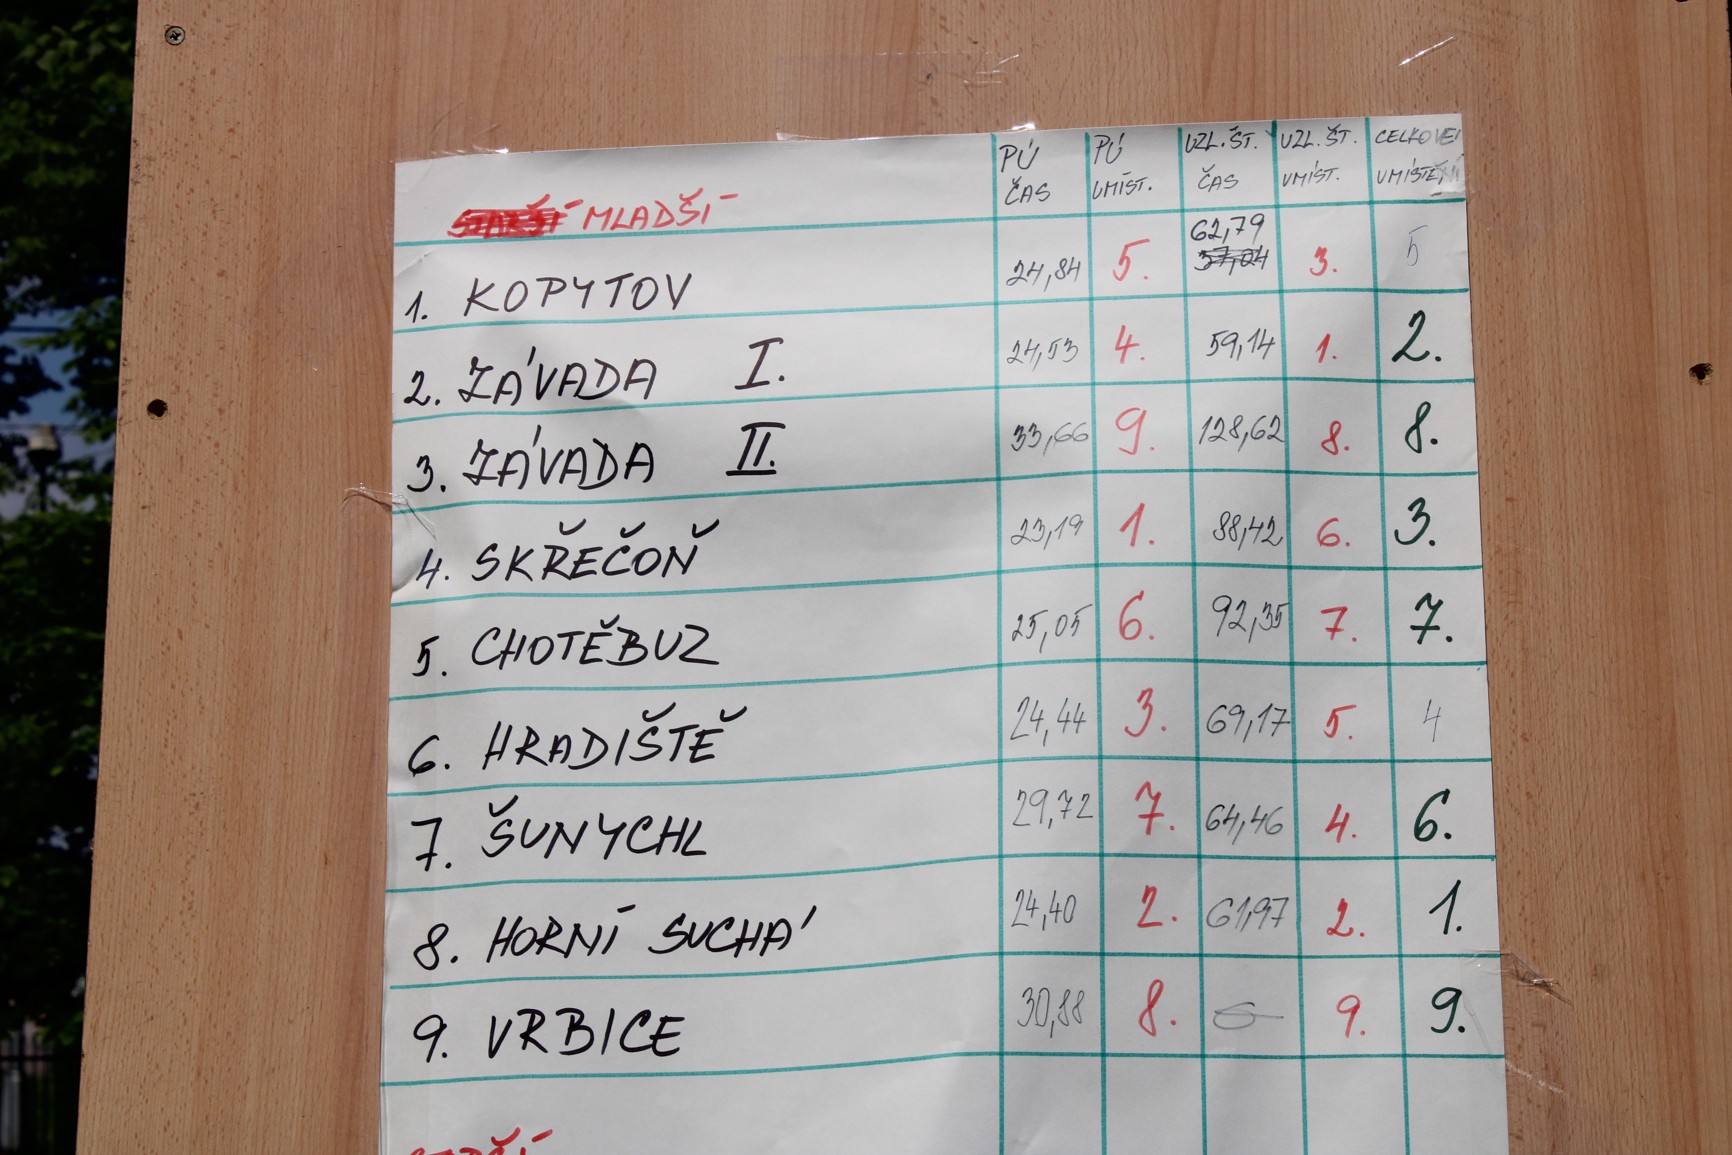 PÚ ČAS PÚ UMÍST. UZL.ŠT. ČAS UZL.ŠT. UMÍST. CELKOVÉ UMÍSTĚNÍ
STARŠÍ MLADŠÍ
1. KOPYTOV 24,84 5. 62,79 37,04 3. 5
2. ZÁVADA I. 24,53 4. 59,14 1. 2.
3. ZÁVADA II. 33,66 9. 128,62 8. 8.
4. SKŘEČOŇ 23,19 1. 88,42 6. 3.
5. CHOTĚBUZ 25,05 6. 92,35 7. 7.
6. HRADIŠTĚ 24,44 3. 69,17 5. 4
7. ŠUNYCHL 29,72 7. 64,46 4. 6.
8. HORNÍ SUCHÁ 24,40 2. 61,97 2. 1.
9. VRBICE 30,88 8. 9. 9.